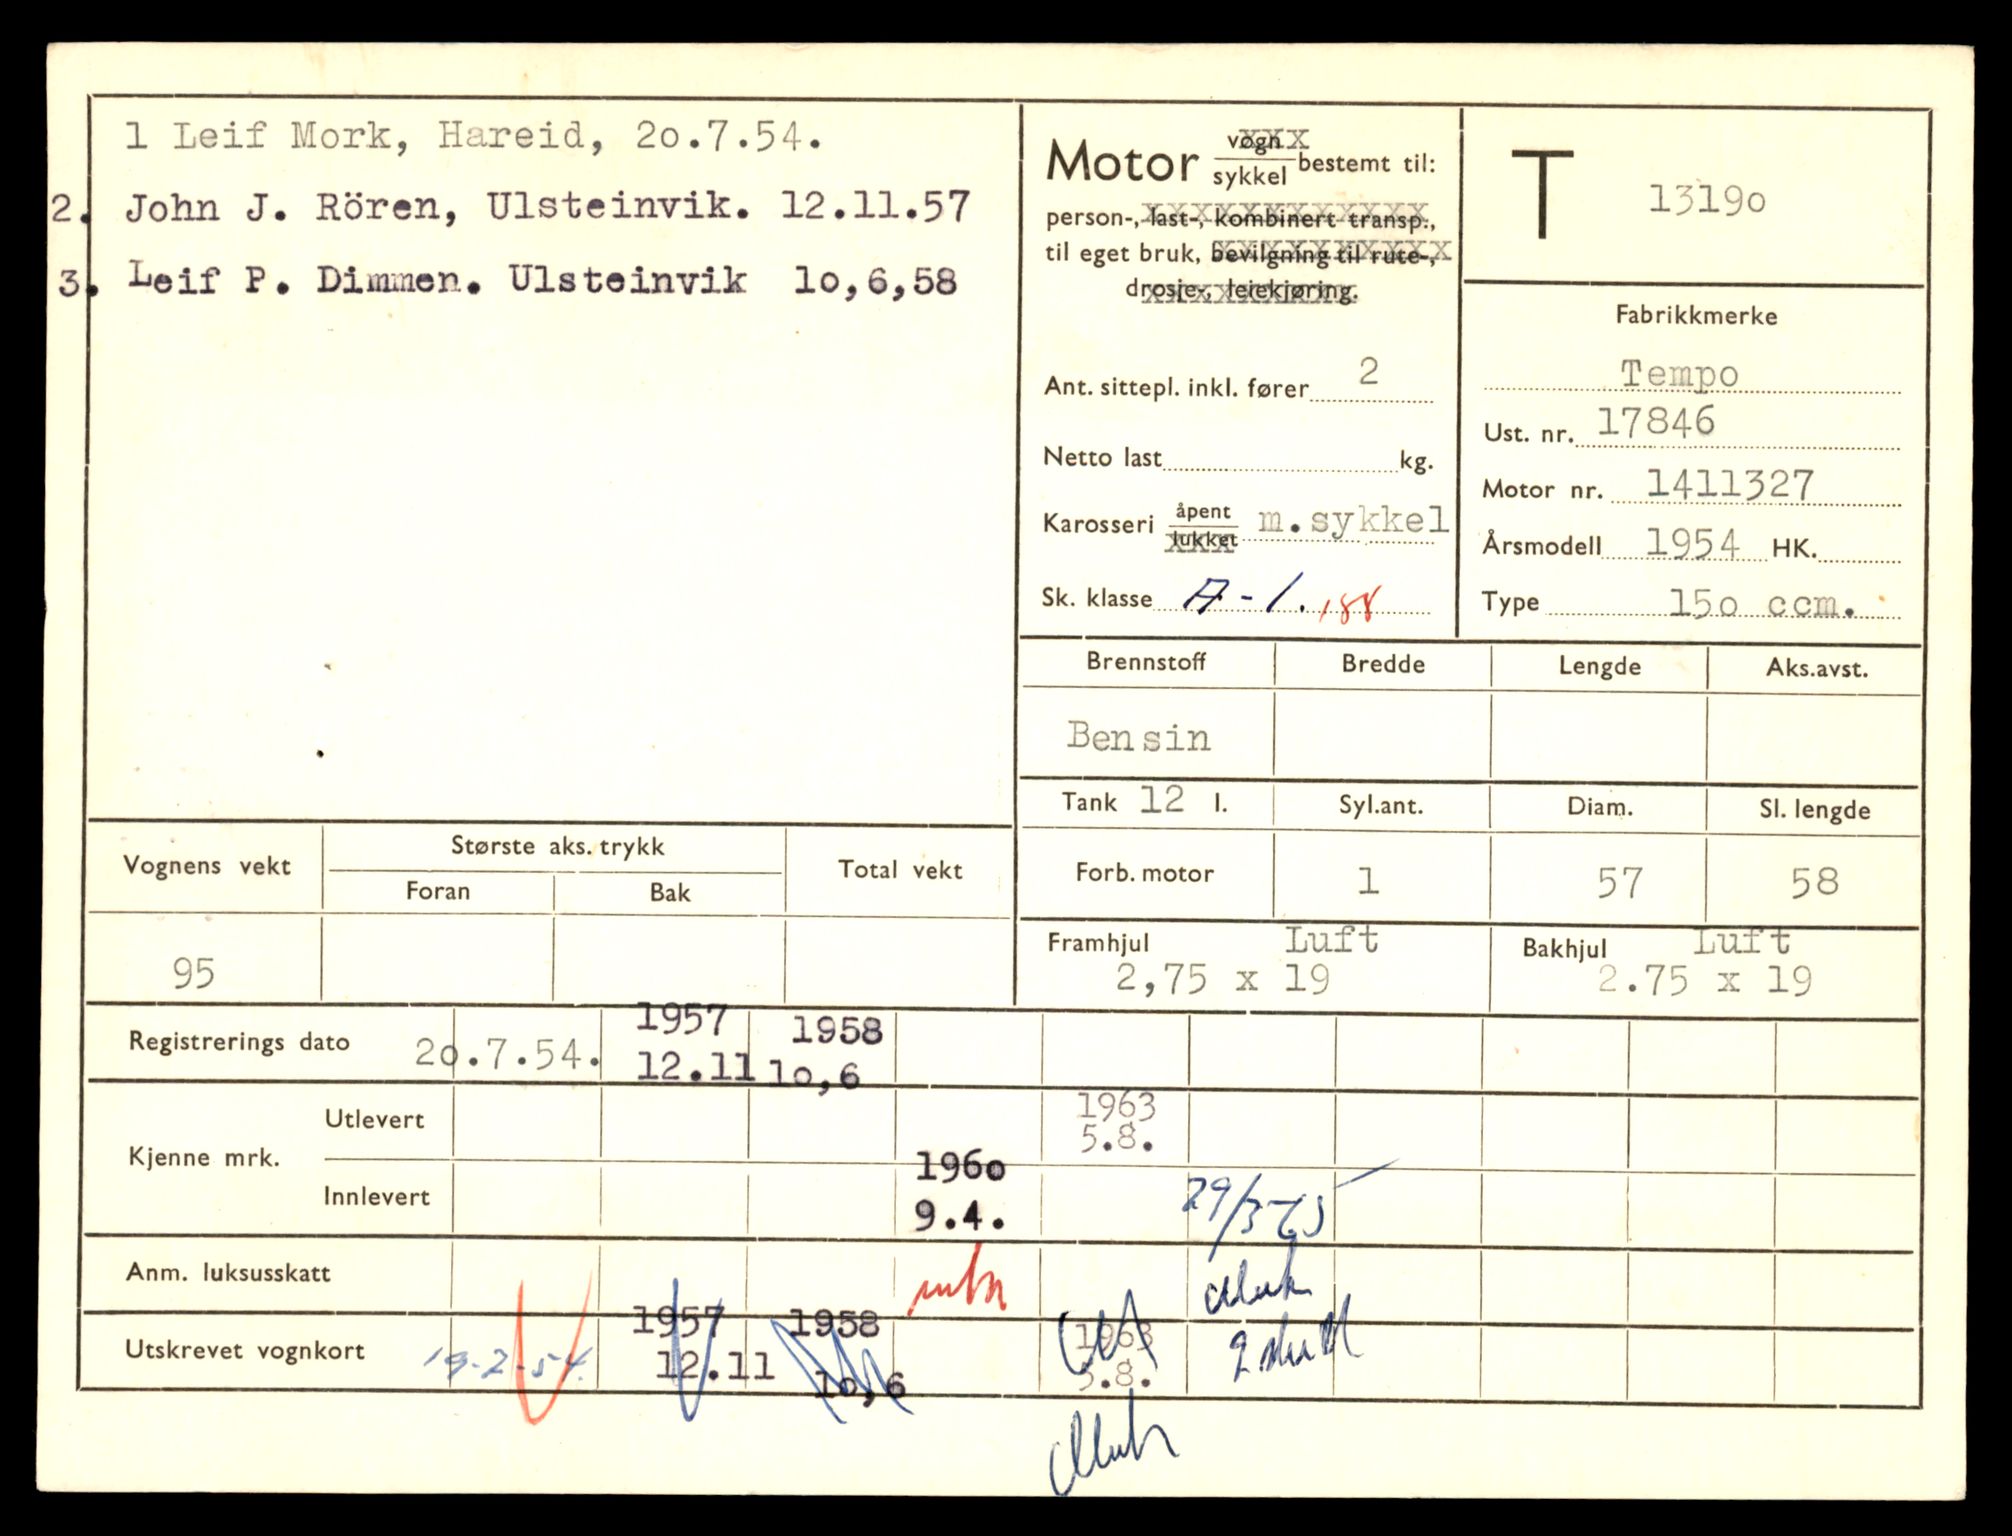 1 Leif Mork, Hareid, 2o.7.54.
2. John J. Rören, Ulsteinvik. 12.11.57
3. Leif P. Dimmen. Ulsteinvik 1o,6,58
Motor vogn sykkel bestemt til:
person-, last-, kombinert transp.,
til eget bruk, bevilgning til rute-,
drosje-, leiekjøring.
Ant. sittepl. inkl. fører 2
Netto last kg.
Karosseri åpent lukket m.sykkel
Sk. klasse A-1.
T 1319o
Fabrikkmerke
Tempo
Ust. nr. 17846
Motor nr. 1411327
Årsmodell 1954 HK.
Type 15o ccm.
Brennstoff Bredde Lengde Aks.avst.
Bensin
Tank 12 l. Syl.ant. Diam. Sl. lengde
Forb. motor 1 57 58
Framhjul Luft Bakhjul Luft
2,75 x 19 2.75 x 19
Vognens vekt Største aks. trykk Total vekt
Foran Bak
95
Registrerings dato 2o.7.54. 1957 12.11 1958 1o,6
Kjenne mrk.
Utlevert 1963 5.8.
Innlevert 196o 9.4. 29/3-65
Anm. luksusskatt
Utskrevet vognkort 19-2-54. 1957 12.11 1958 1o,6 1963 5.8.